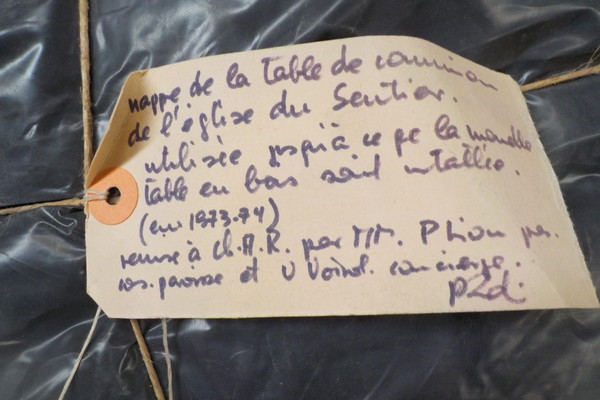 nappe de la table de communion
de l'église du Sentier.
utilisée jusqu'à ce que la nouvelle
table en bois soit installée.
(env 1973-74)
remise à Ch.A.R. par MM. P Lion
cons. paroisse et V Voirol. concierge.